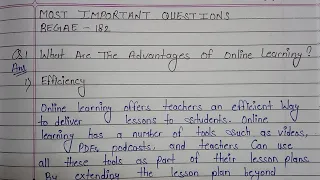 MOST IMPORTANT QUESTIONS
BEGAE - 182
Q.1 What Are The Advantages of Online Learning?
Ans
1) Efficiency
Online learning offers teachers an efficient way
to deliver lessons to students. Online
learning has a number of tools such as videos,
PDFs, podcasts, and teachers can use
all these tools as part of their lesson plans.
By extending the lesson plan beyond